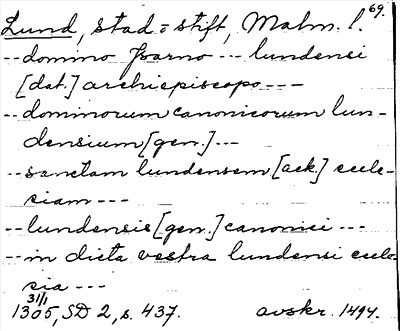 69.
Lund, stad o stift, Malm. l.
-- domino Isarno --- lundensi
[dat.] archiepiscopo ---
-- dominorum canonicorum lun-
densium [gen.] ---
-- sanctam lundensem [ack.] eccle-
siam ---
-- lundensis [gen.] canonici ---
-- in dicta vestra lundensi eccle-
sia ---
31/1
1305, SD 2, s. 437. avskr. 1494.